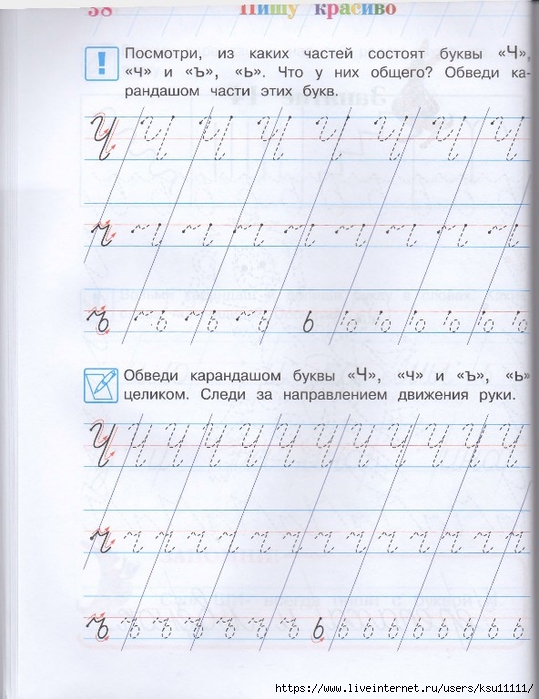 38 Пишу красиво
! Посмотри, из каких частей состоят буквы «Ч»,
«ч» и «ъ», «ь». Что у них общего? Обведи ка-
рандашом части этих букв.
Ч
ч
ъ ь
Обведи карандашом буквы «Ч», «ч» и «ъ», «ь»
целиком. Следи за направлением движения руки.
Ч Ч Ч Ч Ч Ч Ч Ч Ч Ч Ч Ч
ч ч ч ч ч ч ч ч ч ч ч ч
ъ ъ ъ ъ ъ ъ ь ь ь ь ь ь
https://www.liveinternet.ru/users/ksu11111/